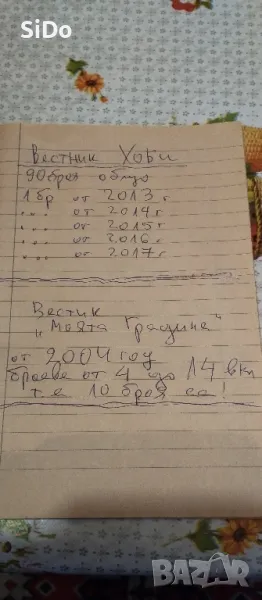 SiDo
Вестник Хоби
90 броя общо
1 бр от 2013 г
" " " от 2014 г.
" " " от 2015 г
" " " от 2016 г.
" " " от 2017 г.
Вестик
"Моята Градина"
от 2004 год
броеве от 4 до 14 вкл
т.е 10 броя са!
bazar